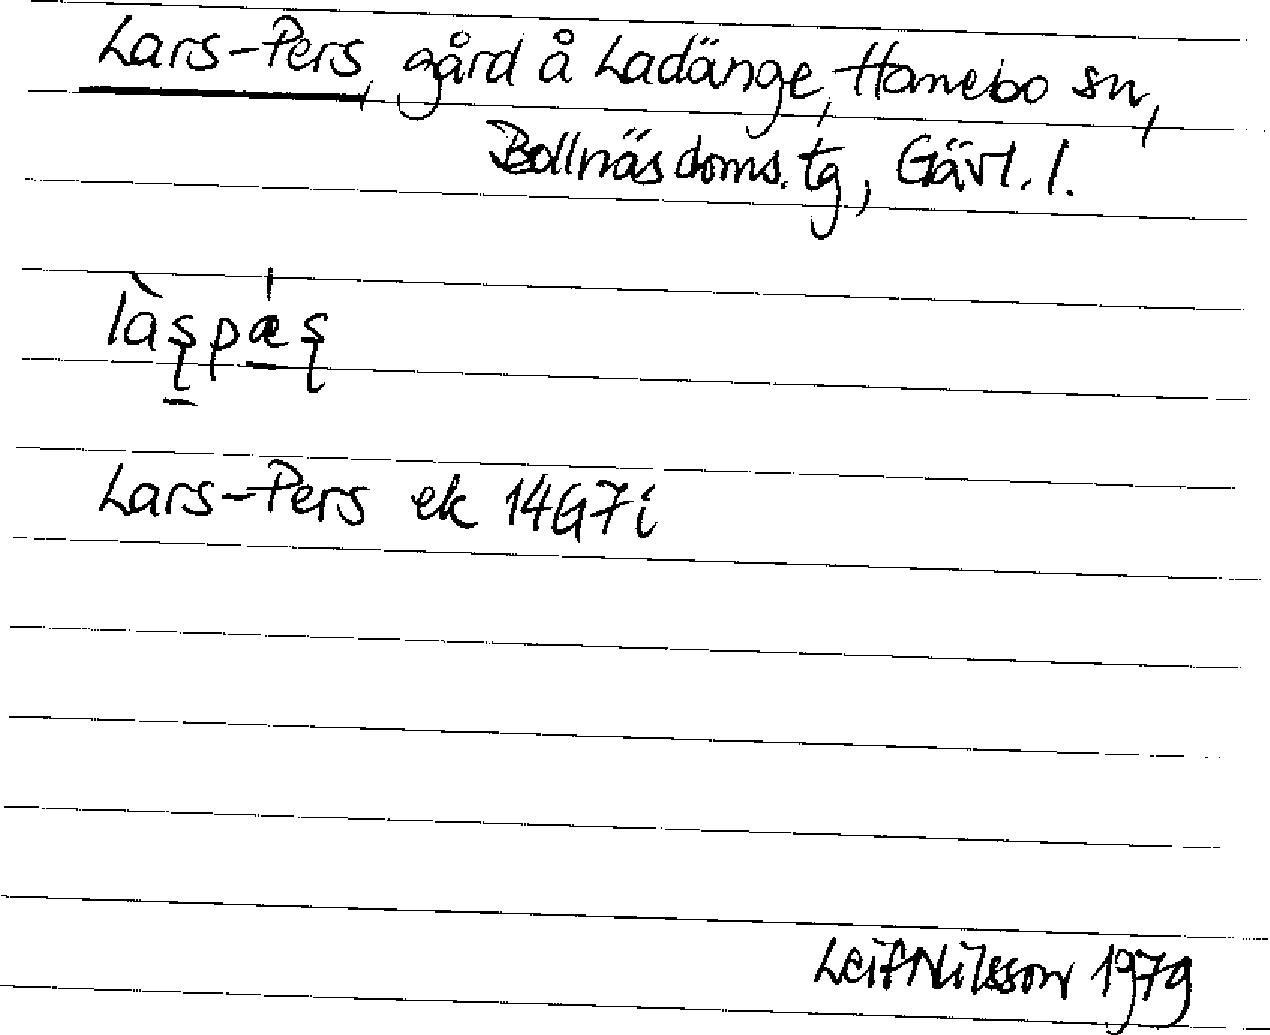 Lars-Pers, gård å Ladänge, Hanebo sn,
Bollnäs doms. tg, Gävl. l.
làʂpæ̍ʂ
Lars-Pers ek 14G7i
Leif Nilsson 1979